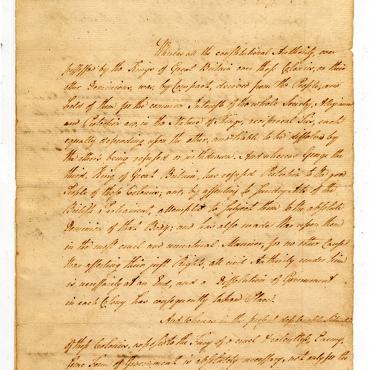 Whereas all the constitutional Authority, ever
possessed by the Kings of Great Britain over these Colonies, or their
other Dominions, was, by Compact, derived from the People, and
held of them for the common Interest of the whole Society, Allegiance
and Protection are, in the Nature of Things, reciprocal Ties, each
equally depending upon the other, and liable to be dissolved by
the other's being refused or withdrawn. And whereas George the
third, King of Great Britain, has refused Protection to the good
People of these Colonies, and, by assenting to sundry Acts of the
British Parliament, attempted to subject them to the absolute
Dominion of that Body; and has also made War upon them
in the most cruel and unnatural Manner, for no other Cause
than asserting their just Rights, all civil Authority under him
is necessarily at an End, and a Dissolution of Government
in each Colony has consequently taken Place.
And whereas in the present
of these Colonies, exposed to the Fury of a cruel & relentless Enemy,
some Form of Government is absolutely necessary, not only for the